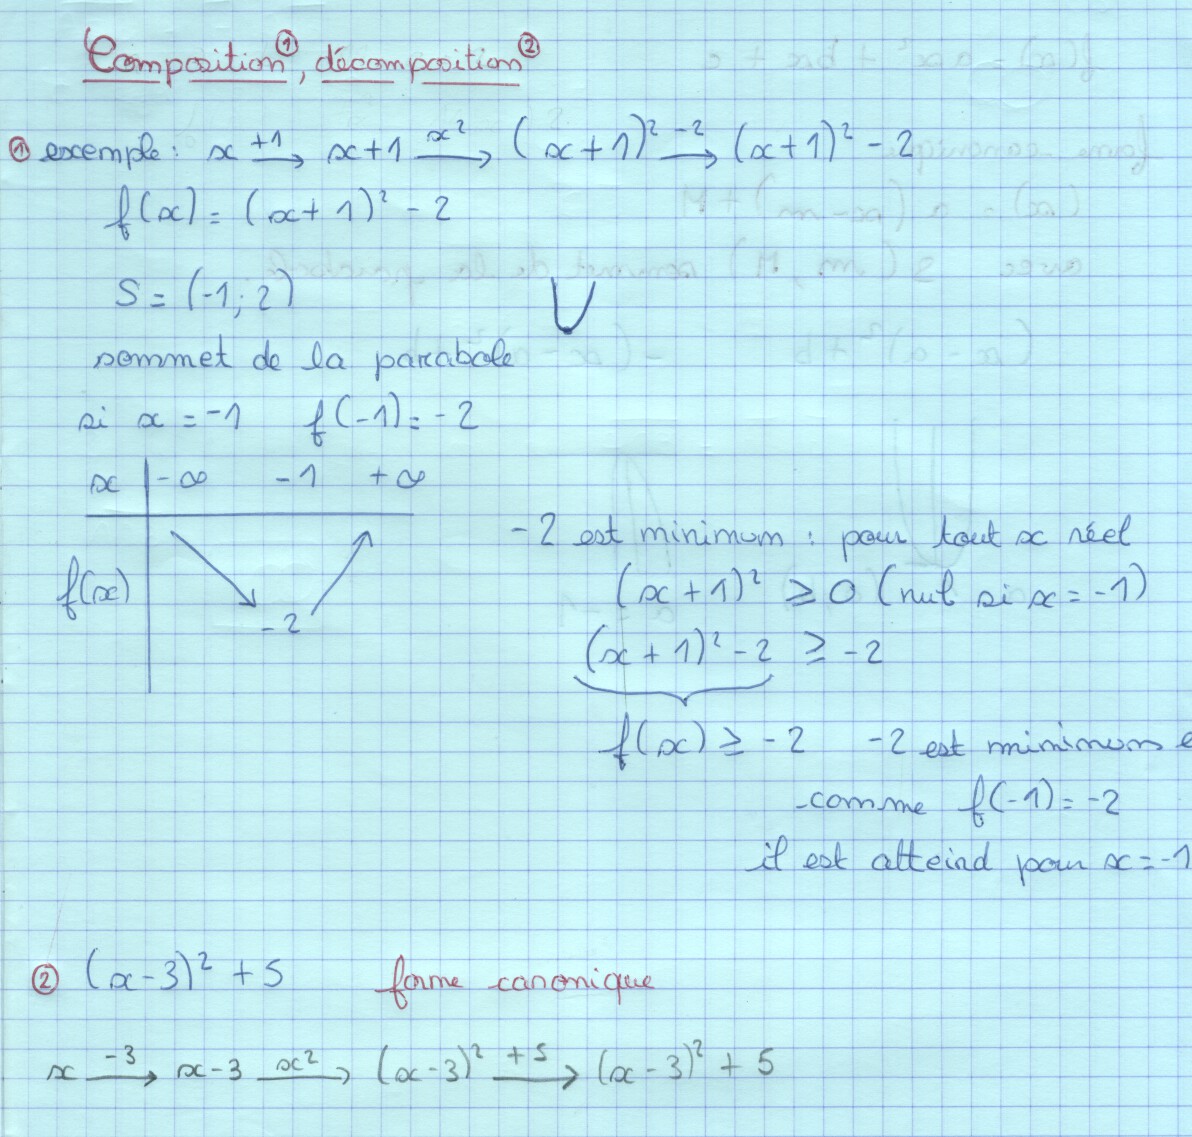 Composition①, décomposition②
① exemple : x —+1→ x+1 —x²→ (x+1)² —-2→ (x+1)² - 2
f(x) = (x+1)² - 2
S = (-1; 2)
sommet de la parabole
si x = -1 f(-1) = -2
x -∞ -1 +∞
f(x) -2
-2 est minimum : pour tout x réel
(x+1)² ≥ 0 (nul si x = -1)
(x+1)² - 2 ≥ -2
f(x) ≥ -2 -2 est minimum e
comme f(-1) = -2
il est atteind pour x = -1
② (x-3)² + 5 forme canonique
x —-3→ x-3 —x²→ (x-3)² —+5→ (x-3)² + 5